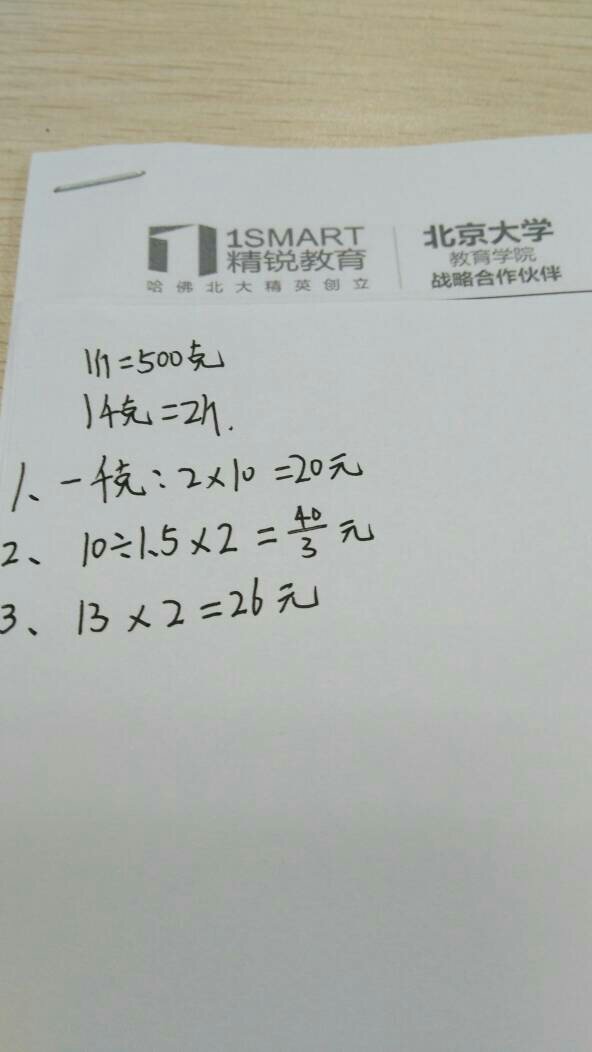 1SMART
精锐教育
哈佛北大精英创立
北京大学
教育学院
战略合作伙伴
1斤=500克
1千克=2斤.
1、一千克:2×10=20元
2、10÷1.5×2=40/3元
3、13×2=26元